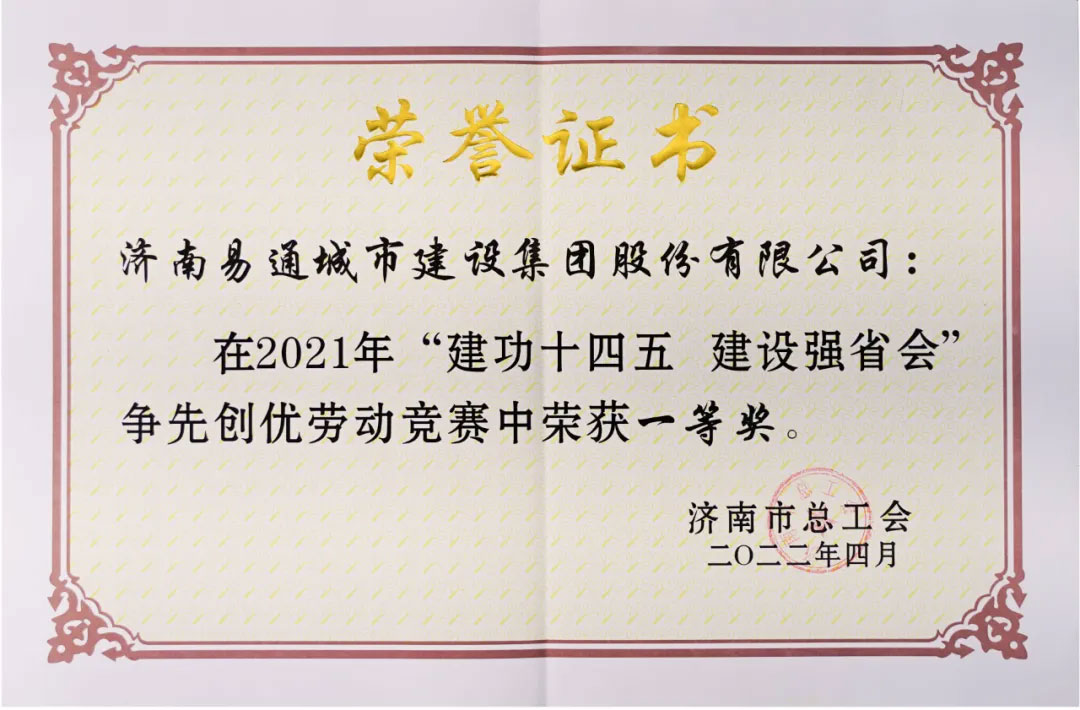 荣誉证书
济南易通城市建设集团股份有限公司：
在2021年“建功十四五 建设强省会”
争先创优劳动竞赛中荣获一等奖。
济南市总工会
二〇二二年四月